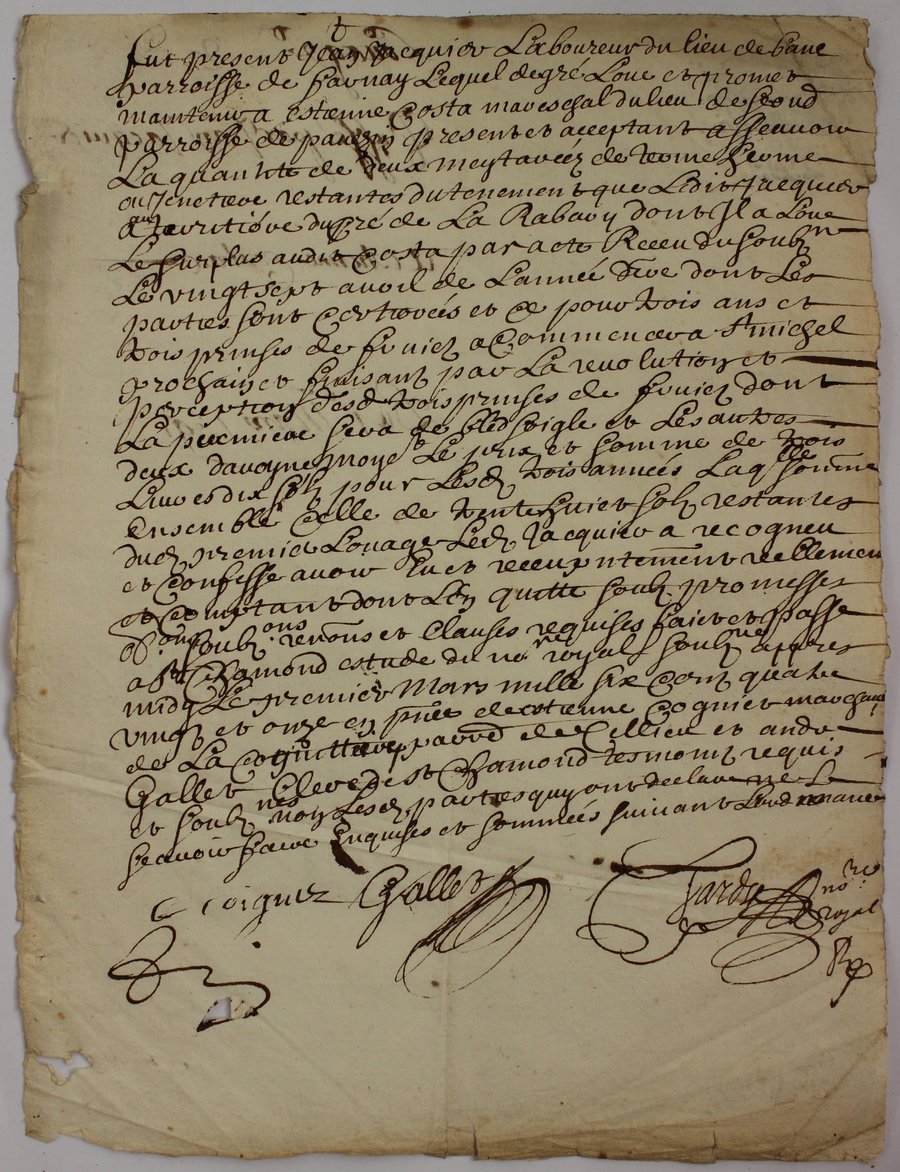 fut present Jean Jacquier Laboureur du lieu de
parroisse de farnay Lequel de gré Loue et promet
maintenir a estienne Costa mareschal du lieu de
parroisse de present et acceptant a sçeavoir
La quantite de deux meytarées de terre herme
ou restantes du tenement que Ledit Jacquier
du pré de La Rabary dont Il a Loue
Le surplus audit Costa par acte Receu du soub.ne
Le vingt sept avril de L'année dont Les
parties sont certiorées et ce pour trois ans et
trois prinses de fruictz a Commencer a St michel
prochain et finisant par La revolution et
perception desd trois prinses de fruictz dont
La premiere sera de bled seigle et Les autres
deux d'avoyne moyent Le prix et somme de trois
Livres dix solz pour Lesd trois années Laq.lle somme
Ensemble Celle de trente huict solz restantes
dud premier Louage Led Jacquier a recogneu
et Confesse avoir Eu et receu ptement reellement
et comptant dont Len quitte soubz promesses
oblig.ons soubz.ons renons et Clauses requises faict et passe
a St Chamond estude du no.re royal soub.ne appres
midy Le premier Mars mille six Cent quatre
vingt et onze en pnce de estienne Cognet marchand
de La parr de Cellieu et andre
Gallet Clerc de St Chamond tesmoins requis
et soub.nes non Lesd parties quy ont declare ne Le
sçeavoir faire Enquises et sommées suivant Lordonnance
Coignet Gallet Tardy no.re
royal